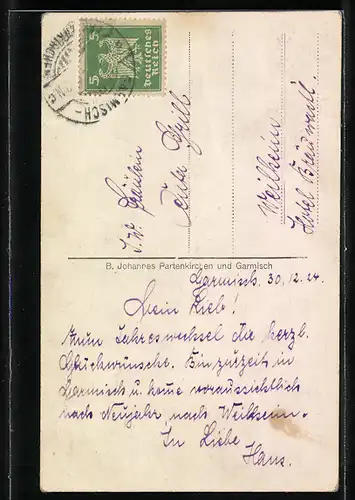 GARMISCH-
5 5
Deutsches
Reich
Fräulein
Weilheim
Hotel Bräuwastl.
B. Johannes Partenkirchen und Garmisch
Garmisch, 30.12.24.
Mein Lieb!
Zum Jahreswechsel die herzl.
Glückwünsche. Bin zurzeit in
Garmisch u. komme voraussichtlich
nach Neujahr nach Weilheim.
In Liebe
Hans.